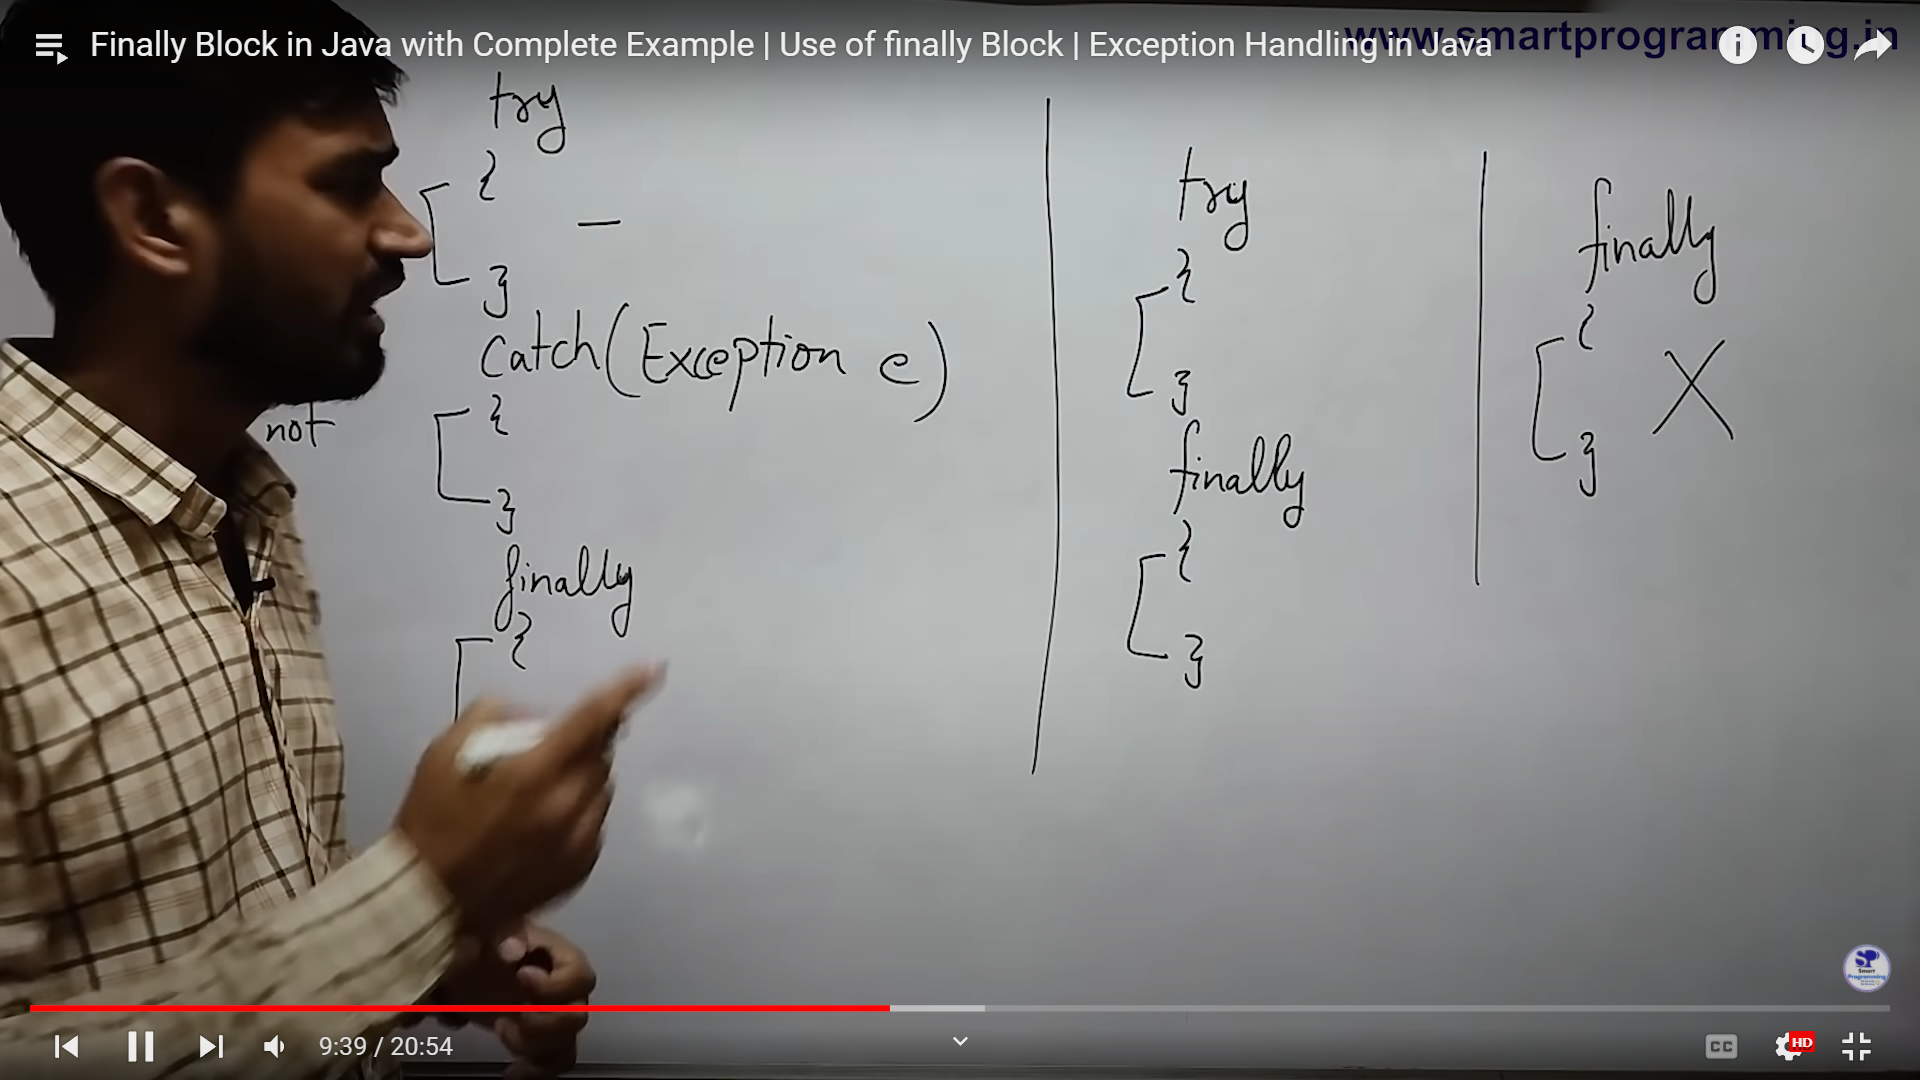 Finally Block in Java with Complete Example | Use of finally Block | Exception Handling in Java
www.smartprogramming.in
try
{
—
}
catch(Exception e)
{
}
finally
{
not
try
{
}
finally
{
}
finally
{
X
}
SP
Smart
Programming
9:39 / 20:54
CC
HD